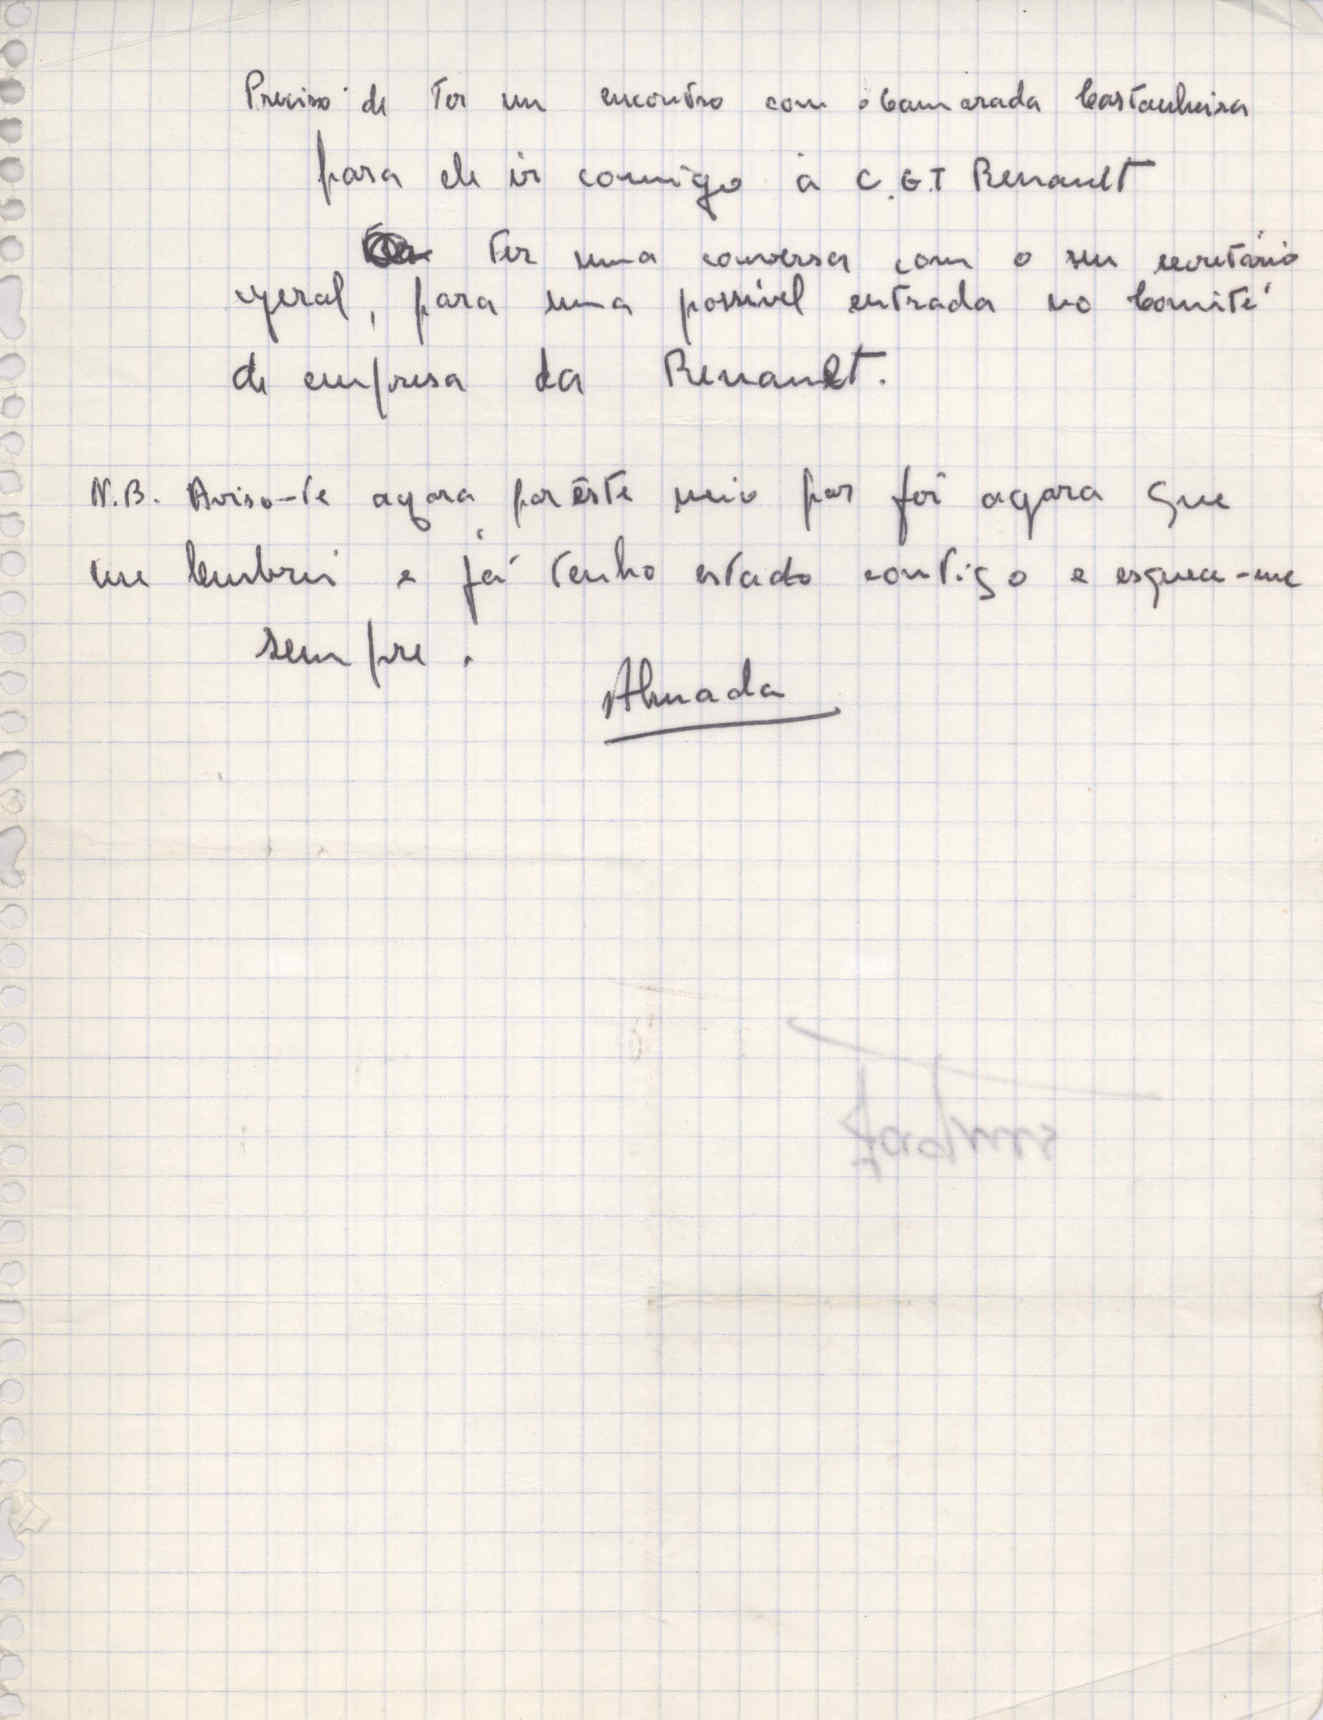 Preciso de ter um encontro com o camarada Castanheira
para ele ir comigo à C.G.T Renault
ter uma conversa com o seu secretário
geral, para uma possível entrada no Comité
de empresa da Renault.
N.B. Aviso-te agora por êste meio por foi agora que
me lembrei e já tenho estado contigo e esquece-me
sempre.
Almada